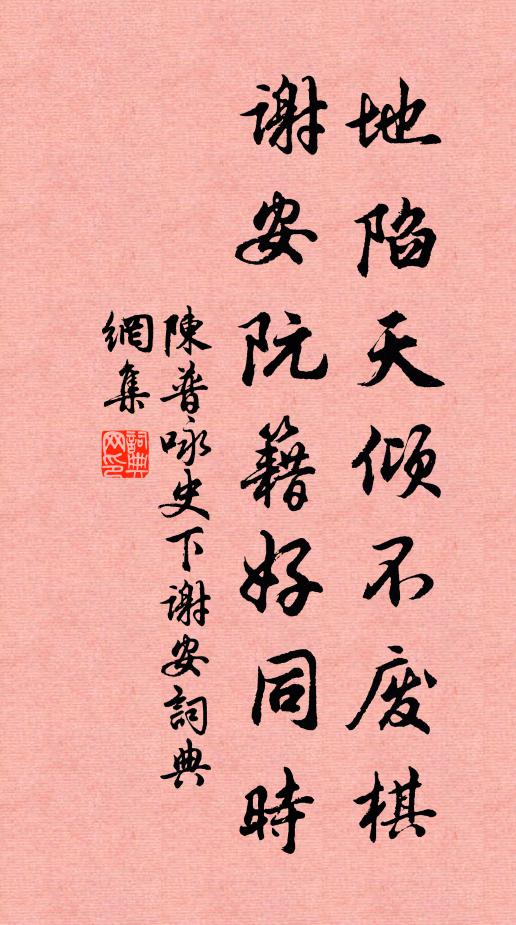 地陷天倾不废棋
谢安阮籍好同時
陳普咏史下谢安詞典
網集
詞典网印